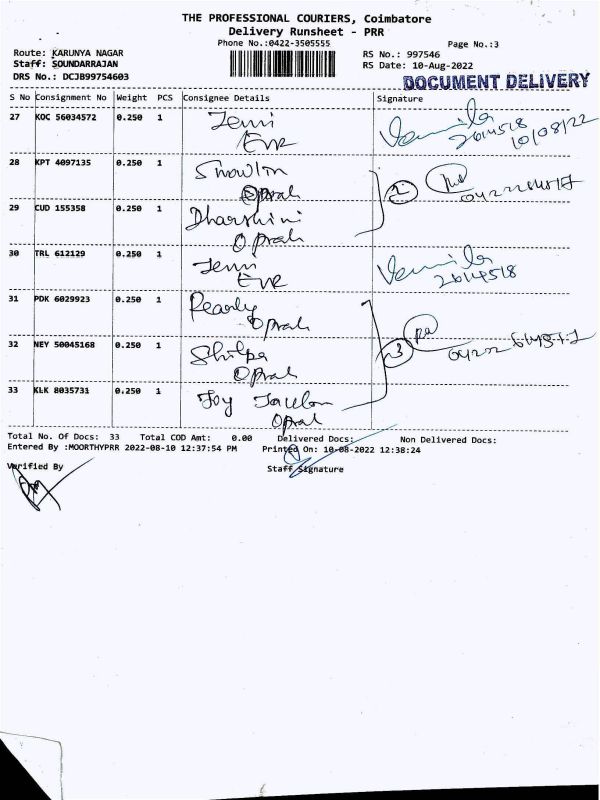 THE PROFESSIONAL COURIERS, Coimbatore
Delivery Runsheet - PRR
Phone No.:0422-3505555
Page No.:3
Route: KARUNYA NAGAR
RS No.: 997546
Staff: SOUNDARRAJAN
RS Date: 10-Aug-2022
DRS No.: DCJB99754603
DOCUMENT DELIVERY
S No Consignment No Weight PCS Consignee Details Signature
27 KOC 56034572 0.250 1 Jemi
EVR
264518
10/08/22
28 KPT 4097135 0.250 1 Snowlin
Oprah
2
29 CUD 155358 0.250 1 Dharshini
Oprah
30 TRL 612129 0.250 1 Jemi
EVR
264518
31 PDK 6029923 0.250 1 Pearly
Oprah
3
32 NEY 50045168 0.250 1 Shilpa
Oprah
33 KLK 8035731 0.250 1 Joy
Oprah
Total No. Of Docs: 33 Total COD Amt: 0.00 Delivered Docs: Non Delivered Docs:
Entered By :MOORTHYPRR 2022-08-10 12:37:54 PM Printed On: 10-08-2022 12:38:24
Verified By Staff Signature